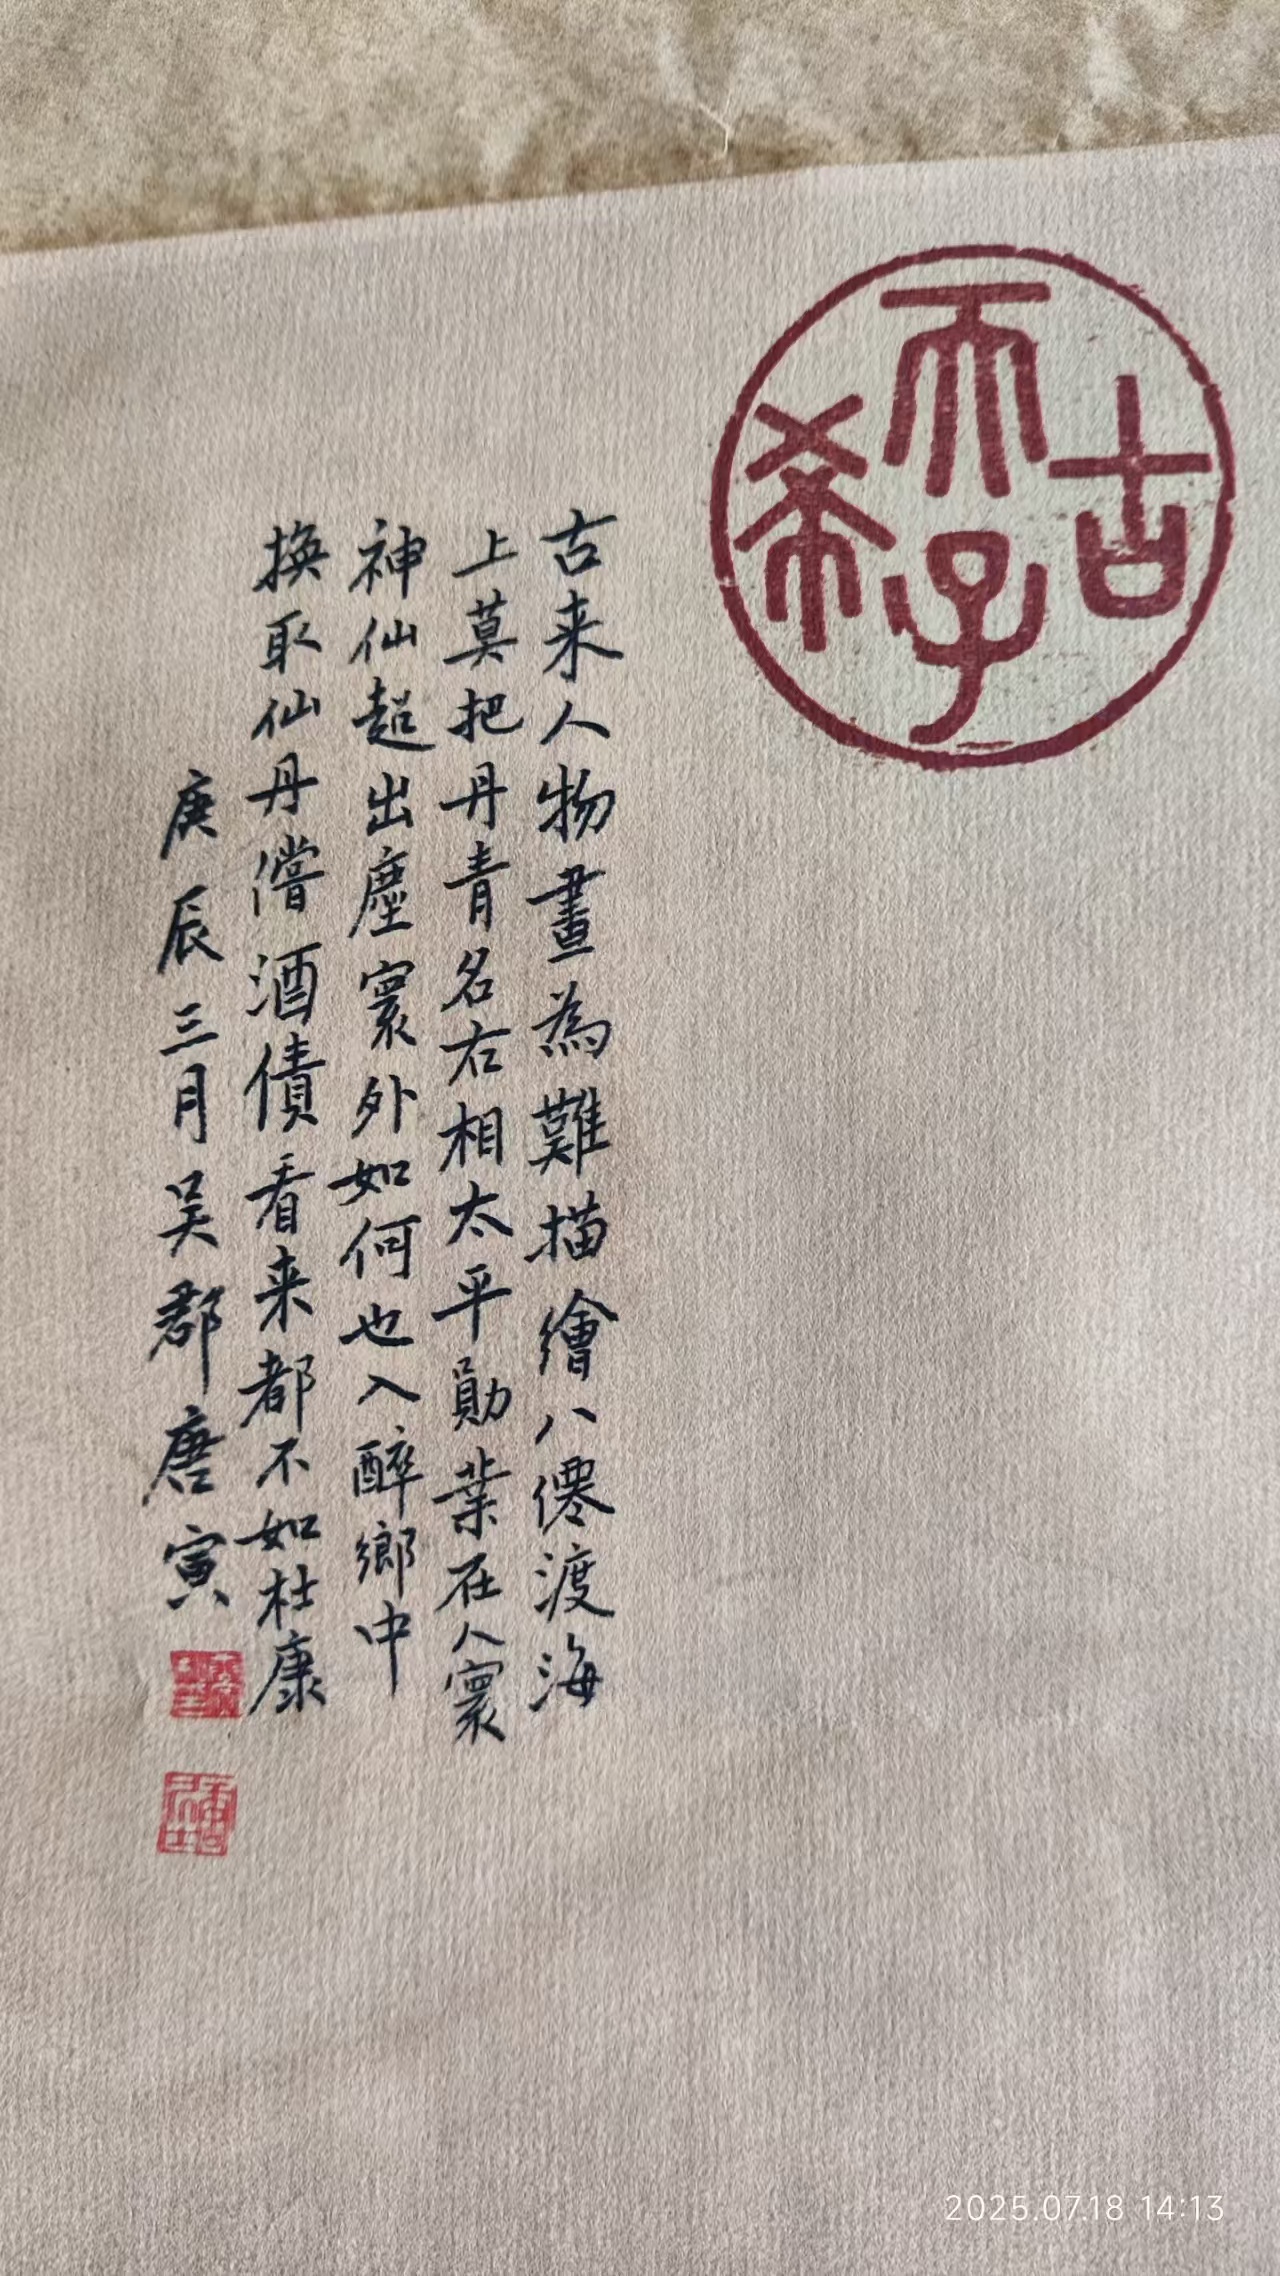 古希天子
古来人物畫為難描繪八僊渡海
上莫把丹青名右相太平勛業在人寰
神仙超出塵寰外如何也入醉鄉中
換取仙丹償酒債看来都不如杜康
庚辰三月吴郡唐寅
2025.07.18 14:13